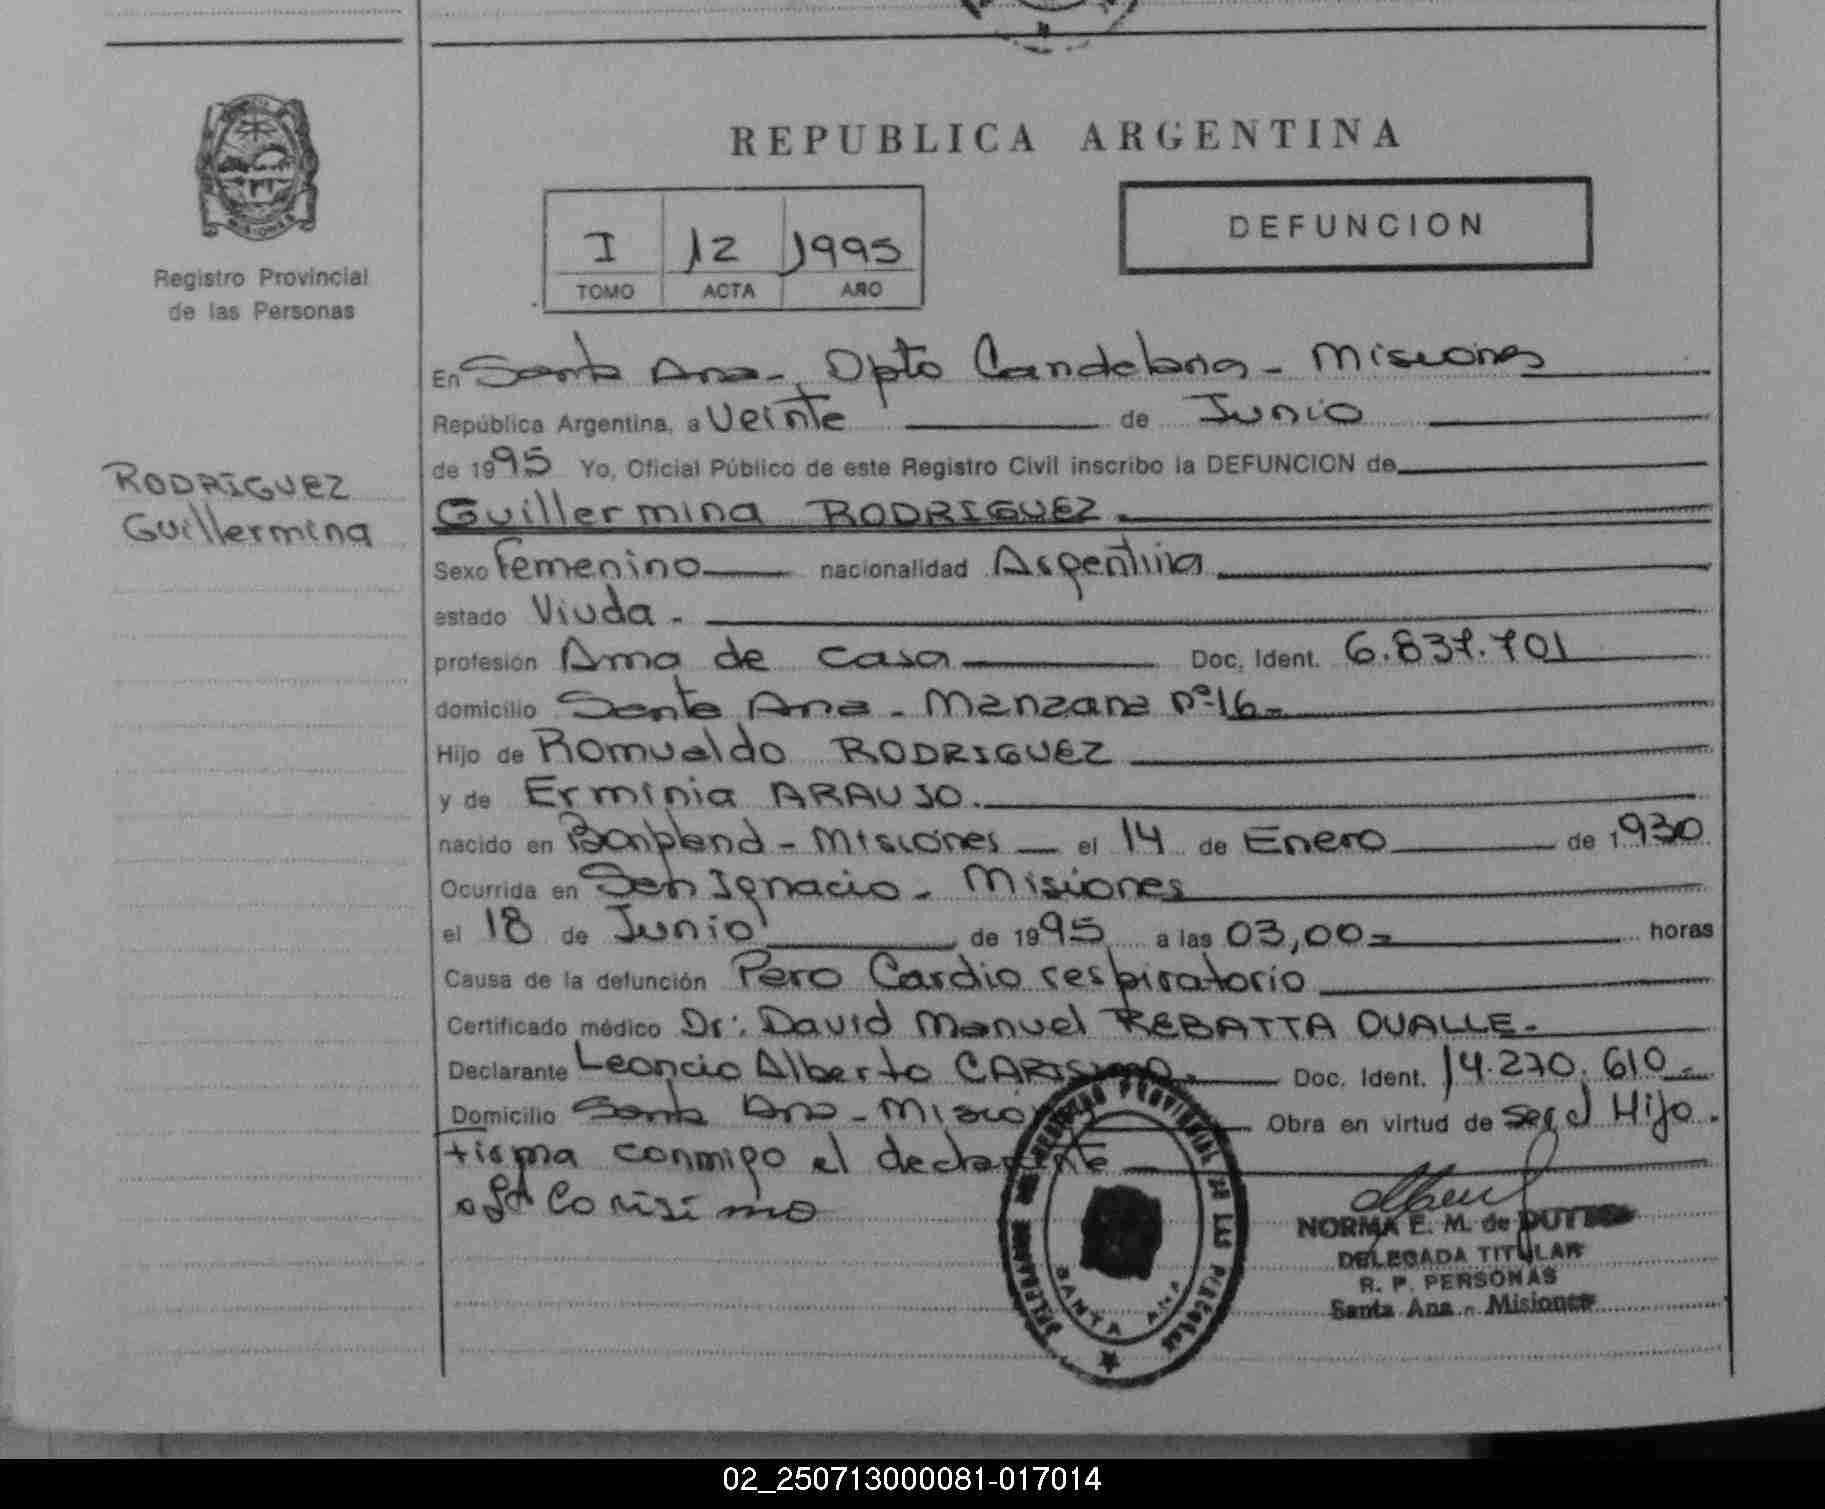 REPUBLICA ARGENTINA
DEFUNCION
I 12 1995
TOMO ACTA AÑO
Registro Provincial
de las Personas
RODRIGUEZ
Guillermina
En Santa Ana-, Dpto Candelaria - Misiones
República Argentina, a Veinte de Junio
de 1995 Yo, Oficial Público de este Registro Civil inscribo la DEFUNCION de
Guillermina RODRIGUEZ.
Sexo Femenino nacionalidad Argentina
estado Viuda.
profesión Ama de casa Doc. Ident. 6.837.701
domicilio Santa Ana - Manzana nº 16-
Hijo de Romualdo RODRIGUEZ
y de Erminia ARAUJO.
nacido en Bonpland - Misiones el 14 de Enero de 1930
Ocurrida en San Ignacio - Misiones
el 18 de Junio de 1995 a las 03,00- horas
Causa de la defunción Paro Cardio respiratorio
Certificado médico Dr: David Manuel REBATTA OVALLE-
Declarante Leoncio Alberto CARISIMO- Doc. Ident. 14.270.610-
Domicilio Santa Ana - Misiones Obra en virtud de ser el Hijo.
firma conmigo el declarante
Carisimo
NORMA E. M. de
DELEGADA TITULAR
R. P. PERSONAS
Santa Ana - Misiones
REGISTRO PROVINCIAL DE LAS PERSONAS
SANTA ANA
MISIONES
02_250713000081-017014